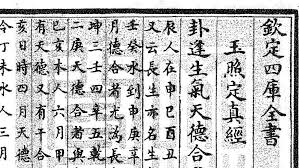 欽定四庫全書
玉照定真經
卦逢生氣天德合
辰人在申巳酉丑
又云長生亦名生
壬癸水到申庚辛
月德合者尤為長
坤三壬四辛五乾
二庚天德合者與
己亥本人六月甲
有天德又有干合
亥日時四月天德
今丁未水人三月